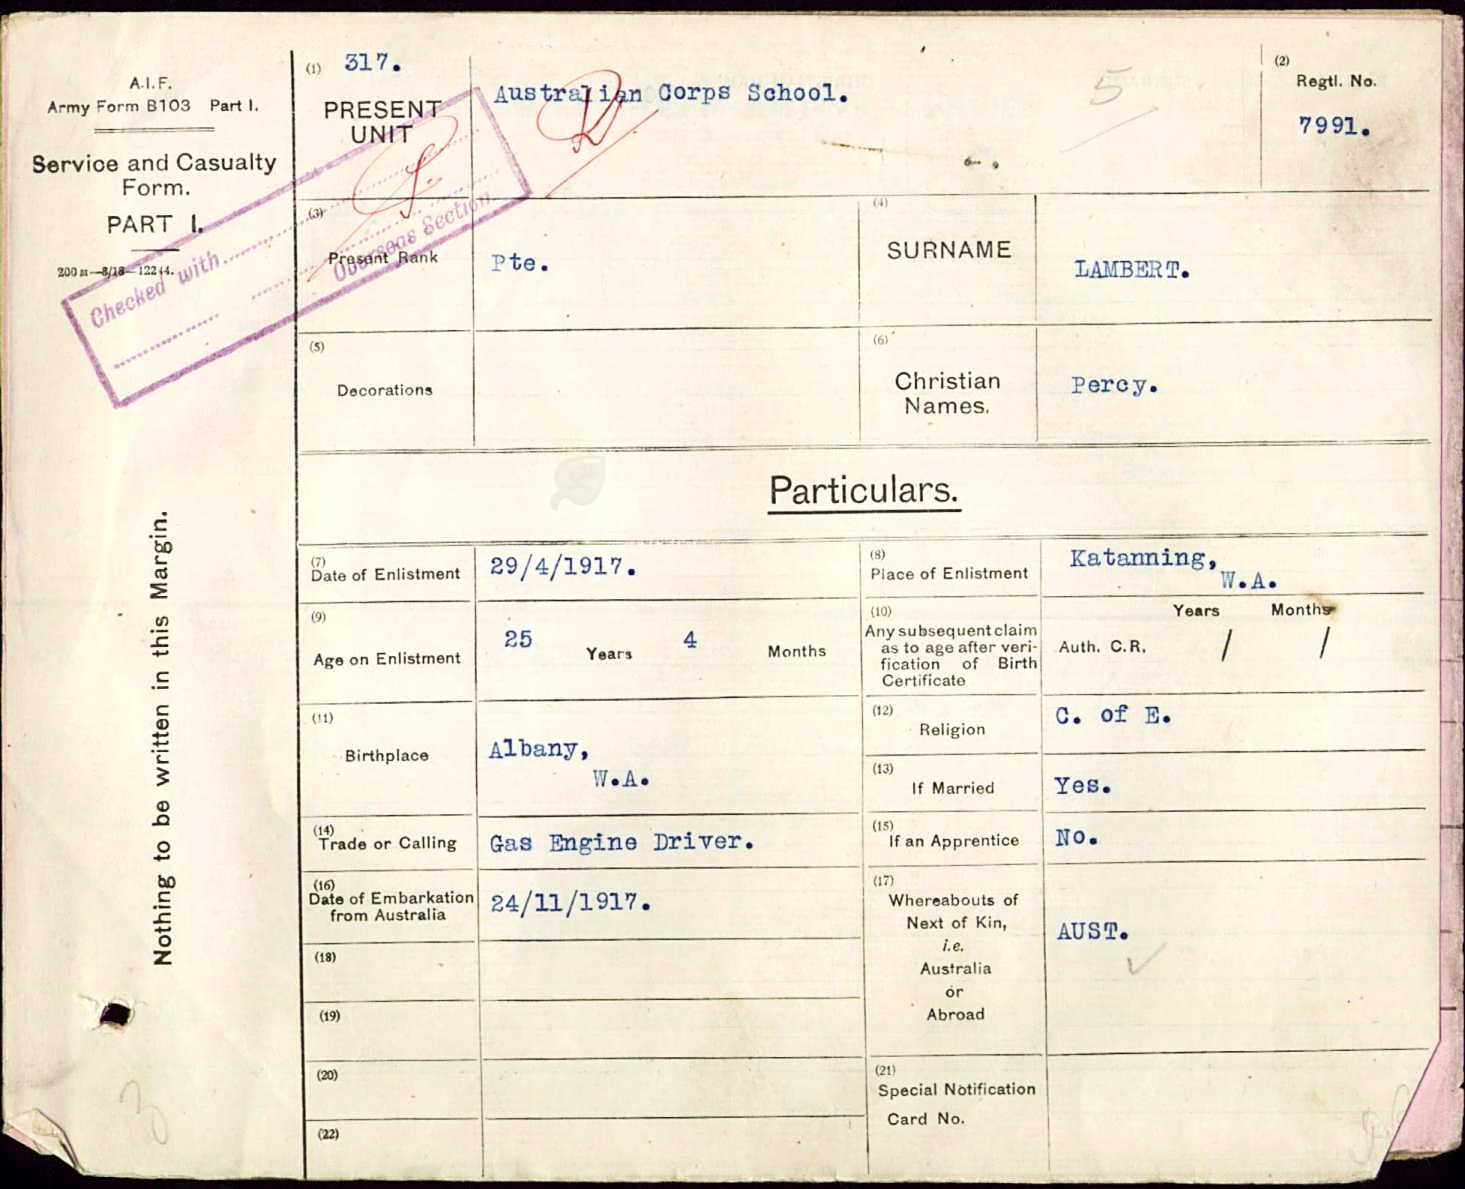 A.I.F.
Army Form B103 Part I.
Service and Casualty
Form.
PART I.
200 m—8/18—12244.
Checked with
Overseas Section
Nothing to be written in this Margin.
(1) 317.
PRESENT
UNIT
Australian Corps School.
5
(2)
Regtl. No.
7991.
(3)
Present Rank
Pte.
(4)
SURNAME
LAMBERT.
(5)
Decorations
(6)
Christian
Names.
Percy.
Particulars.
(7)
Date of Enlistment
29/4/1917.
(8)
Place of Enlistment
Katanning,
W.A.
(9)
Age on Enlistment
25 Years 4 Months
(10)
Any subsequent claim
as to age after veri-
fication of Birth
Certificate
Years Months
Auth. C.R. / /
(11)
Birthplace
Albany,
W.A.
(12)
Religion
C. of E.
(13)
If Married
Yes.
(14)
Trade or Calling
Gas Engine Driver.
(15)
If an Apprentice
No.
(16)
Date of Embarkation
from Australia
24/11/1917.
(17)
Whereabouts of
Next of Kin,
i.e.
Australia
or
Abroad
AUST.
(18)
(19)
(20)
(21)
Special Notification
Card No.
(22)
3